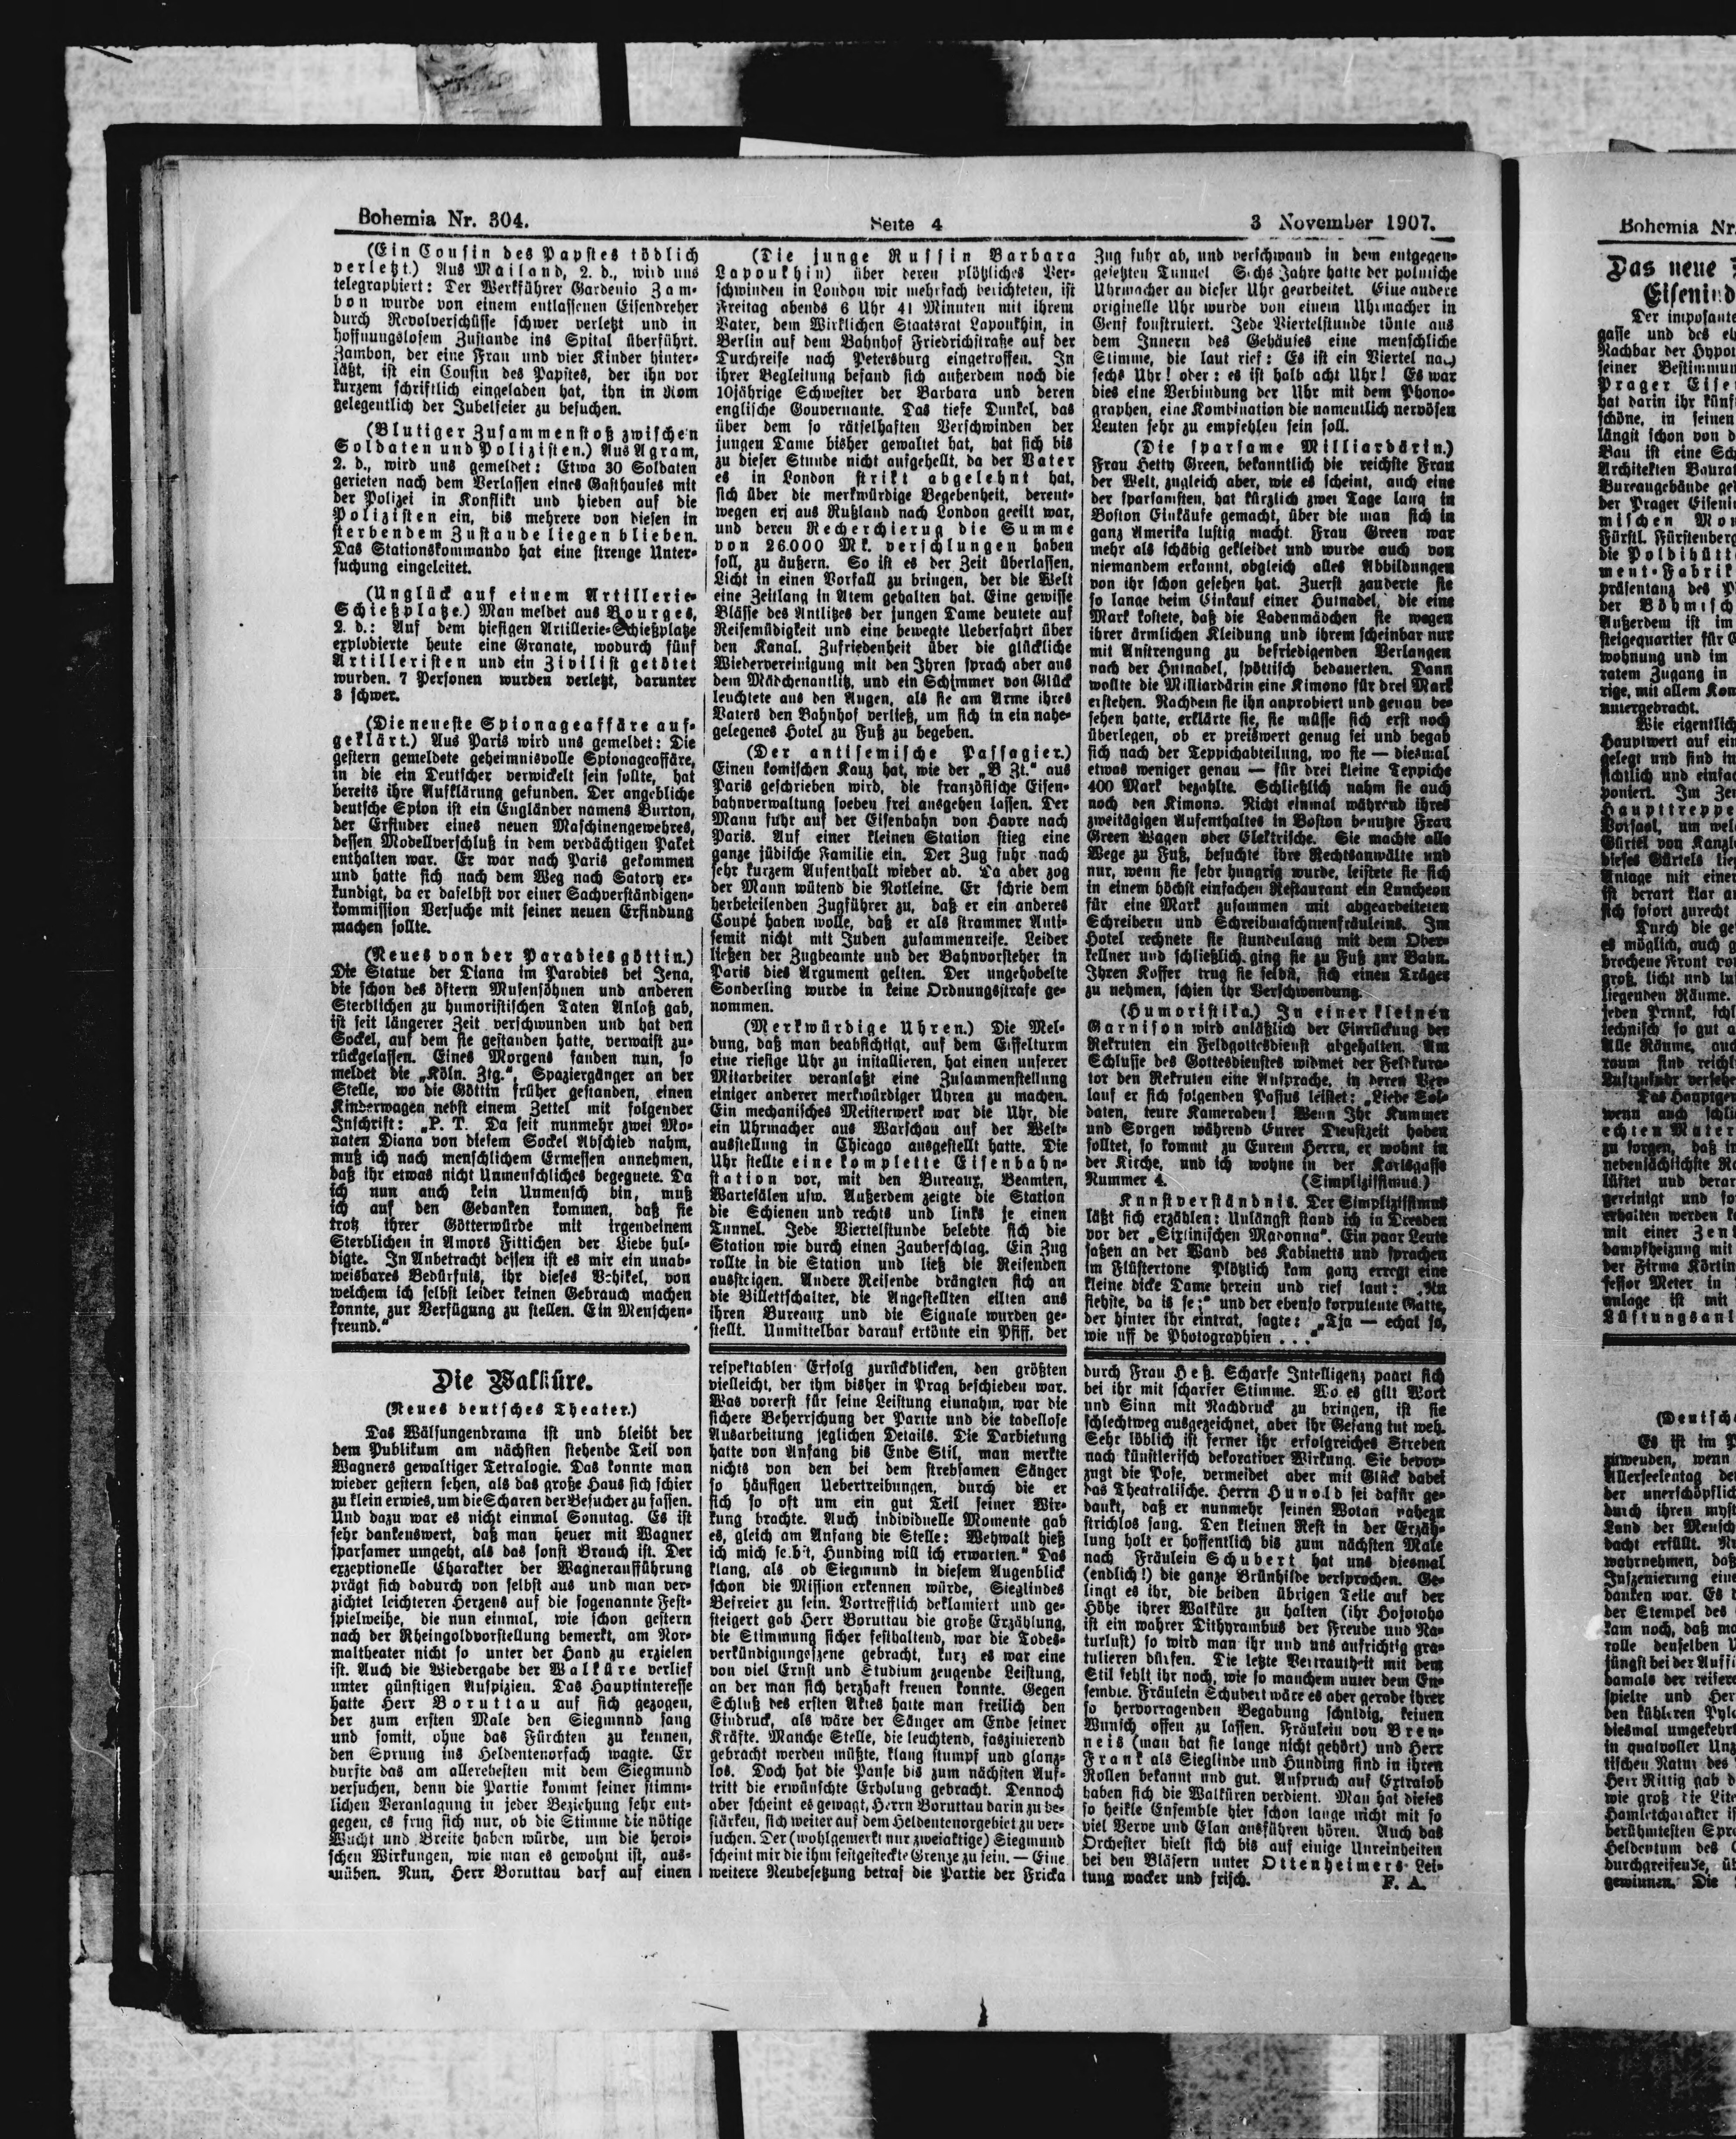 Bohemia Nr. 304.
Seite 4
3 November 1907.
(Ein Cousin des Papstes tödlich
verletzt.) Aus Mailand, 2. d., wird uns
telegraphiert: Der Werkführer Gardenio Zam-
bon wurde von einem entlassenen Eisendreher
durch Revolverschüsse schwer verletzt und in
hoffnungslosem Zustande ins Spital überführt.
Zambon, der eine Frau und vier Kinder hinter-
läßt, ist ein Cousin des Papstes, der ihn vor
kurzem schriftlich eingeladen hat, ihn in Rom
gelegentlich der Jubelfeier zu besuchen.
(Blutiger Zusammenstoß zwischen
Soldaten und Polizisten.) Aus Agram,
2. d., wird uns gemeldet: Etwa 30 Soldaten
gerieten nach dem Verlassen eines Gasthauses mit
der Polizei in Konflikt und hieben auf die
Polizisten ein, bis mehrere von diesen in
sterbendem Zustande liegen blieben.
Das Stationskommando hat eine strenge Unter-
suchung eingeleitet.
(Unglück auf einem Artillerie-
Schießplatze.) Man meldet aus Bourges,
2. d.: Auf dem hiesigen Artillerie-Schießplatze
explodierte heute eine Granate, wodurch fünf
Artilleristen und ein Zivilist getötet
wurden. 7 Personen wurden verletzt, darunter
3 schwer.
(Die neueste Spionageaffäre auf-
geklärt.) Aus Paris wird uns gemeldet: Die
gestern gemeldete geheimnisvolle Spionageaffäre,
in die ein Deutscher verwickelt sein sollte, hat
bereits ihre Aufklärung gefunden. Der angebliche
deutsche Spion ist ein Engländer namens Burton,
der Erfinder eines neuen Maschinengewehres,
dessen Modellverschluß in dem verdächtigen Paket
enthalten war. Er war nach Paris gekommen
und hatte sich nach dem Weg nach Satory er-
kundigt, da er daselbst vor einer Sachverständigen-
kommission Versuche mit seiner neuen Erfindung
machen sollte.
(Neues von der Paradiesgöttin.)
Die Statue der Diana im Paradies bei Jena,
die schon des öftern Musensöhnen und anderen
Sterblichen zu humoristischen Taten Anlaß gab,
ist seit längerer Zeit verschwunden und hat den
Sockel, auf dem sie gestanden hatte, verwaist zu-
rückgelassen. Eines Morgens fanden nun, so
meldet die „Köln. Ztg.“, Spaziergänger an der
Stelle, wo die Göttin früher gestanden, einen
Kinderwagen nebst einem Zettel mit folgender
Inschrift: „P. T. Da seit nunmehr zwei Mo-
naten Diana von diesem Sockel Abschied nahm,
muß ich nach menschlichem Ermessen annehmen,
daß ihr etwas nicht Unmenschliches begegnete. Da
ich nun auch kein Unmensch bin, muß
ich auf den Gedanken kommen, daß sie
trotz ihrer Götterwürde mit irgendeinem
Sterblichen in Amors Fittichen der Liebe hul-
digte. In Anbetracht dessen ist es mir ein unab-
weisbares Bedürfnis, ihr dieses Vehikel, von
welchem ich selbst leider keinen Gebrauch machen
konnte, zur Verfügung zu stellen. Ein Menschen-
freund.“
(Die junge Russin Barbara
Lapoukhin) über deren plötzliches Ver-
schwinden in London wir mehrfach berichteten, ist
Freitag abends 6 Uhr 41 Minuten mit ihrem
Vater, dem Wirklichen Staatsrat Lapoukhin, in
Berlin auf dem Bahnhof Friedrichstraße auf der
Durchreise nach Petersburg eingetroffen. In
ihrer Begleitung befand sich außerdem noch die
10jährige Schwester der Barbara und deren
englische Gouvernante. Das tiefe Dunkel, das
über dem so rätselhaften Verschwinden der
jungen Dame bisher gewaltet hat, hat sich bis
zu dieser Stunde nicht aufgehellt, da der Vater
es in London strikt abgelehnt hat,
sich über die merkwürdige Begebenheit, derent-
wegen erj aus Rußland nach London geeilt war,
und deren Recherchierug die Summe
von 26.000 Mk. verschlungen haben
soll, zu äußern. So ist es der Zeit überlassen,
Licht in einen Vorfall zu bringen, der die Welt
eine Zeitlang in Atem gehalten hat. Eine gewisse
Blässe des Antlitzes der jungen Dame deutete auf
Reisemüdigkeit und eine bewegte Ueberfahrt über
den Kanal. Zufriedenheit über die glückliche
Wiedervereinigung mit den Ihren sprach aber aus
dem Mädchenantlitz, und ein Schimmer von Glück
leuchtete aus den Augen, als sie am Arme ihres
Vaters den Bahnhof verließ, um sich in ein nahe-
gelegenes Hotel zu Fuß zu begeben.
(Der antisemische Passagier.)
Einen komischen Kauz hat, wie der „B Zt.“ aus
Paris geschrieben wird, die französische Eisen-
bahnverwaltung soeben frei ausgehen lassen. Der
Mann fuhr auf der Eisenbahn von Havre nach
Paris. Auf einer kleinen Station stieg eine
ganze jüdische Familie ein. Der Zug fuhr nach
sehr kurzem Aufenthalt wieder ab. Da aber zog
der Mann wütend die Notleine. Er schrie dem
herbeieilenden Zugführer zu, daß er ein anderes
Coupé haben wolle, daß er als strammer Anti-
semit nicht mit Juden zusammenreise. Leider
ließen der Zugbeamte und der Bahnvorsteher in
Paris dies Argument gelten. Der ungehobelte
Sonderling wurde in keine Ordnungsstrafe ge-
nommen.
(Merkwürdige Uhren.) Die Mel-
dung, daß man beabsichtigt, auf dem Eiffelturm
eine riesige Uhr zu installieren, hat einen unserer
Mitarbeiter veranlaßt eine Zusammenstellung
einiger anderer merkwürdiger Uhren zu machen.
Ein mechanisches Meisterwerk war die Uhr, die
ein Uhrmacher aus Warschau auf der Welt-
ausstellung in Chicago ausgestellt hatte. Die
Uhr stellte eine komplette Eisenbahn-
station vor, mit den Bureaux, Beamten,
Wartesälen usw. Außerdem zeigte die Station
die Schienen und rechts und links je einen
Tunnel. Jede Viertelstunde belebte sich die
Station wie durch einen Zauberschlag. Ein Zug
rollte in die Station und ließ die Reisenden
aussteigen. Andere Reisende drängten sich an
die Billettschalter, die Angestellten eilten aus
ihren Bureaux und die Signale wurden ge-
stellt. Unmittelbar darauf ertönte ein Pfiff, der
Zug fuhr ab, und verschwand in dem entgegen-
gesetzten Tunnel Sechs Jahre hatte der polnische
Uhrmacher an dieser Uhr gearbeitet. Eine andere
originelle Uhr wurde von einem Uhrmacher in
Genf konstruiert. Jede Viertelstunde tönte aus
dem Innern des Gehäuses eine menschliche
Stimme, die laut rief: Es ist ein Viertel
sechs Uhr! oder: es ist halb acht Uhr! Es war
dies eine Verbindung der Uhr mit dem Phono-
graphen, eine Kombination die namentlich nervösen
Leuten sehr zu empfehlen sein soll.
(Die sparsame Milliardärin.)
Frau Hetty Green, bekanntlich die reichste Frau
der Welt, zugleich aber, wie es scheint, auch eine
der sparsamsten, hat kürzlich zwei Tage lang in
Boston Einkäufe gemacht, über die man sich in
ganz Amerika lustig macht. Frau Green war
mehr als schäbig gekleidet und wurde auch von
niemandem erkannt, obgleich alles Abbildungen
von ihr schon gesehen hat. Zuerst zauderte sie
so lange beim Einkauf einer Hutnadel, die eine
Mark kostete, daß die Ladenmädchen sie wegen
ihrer ärmlichen Kleidung und ihrem scheinbar nur
mit Anstrengung zu befriedigenden Verlangen
nach der Hutnadel, spöttisch bedauerten. Dann
wollte die Milliardärin eine Kimono für drei Mark
erstehen. Nachdem sie ihn anprobiert und genau be-
sehen hatte, erklärte sie, sie müsse sich erst noch
überlegen, ob er preiswert genug sei und begab
sich nach der Teppichabteilung, wo sie — diesmal
etwas weniger genau — für drei kleine Teppiche
400 Mark bezahlte. Schließlich nahm sie auch
noch den Kimono. Nicht einmal während ihres
zweitägigen Aufenthaltes in Boston benutzte Frau
Green Wagen oder Elektrische. Sie machte alle
Wege zu Fuß, besuchte ihre Rechtsanwälte und
nur, wenn sie sehr hungrig wurde, leistete sie sich
in einem höchst einfachen Restaurant ein Luncheon
für eine Mark zusammen mit abgearbeiteten
Schreibern und Schreibmaschinenfräuleins. Im
Hotel rechnete sie stundenlang mit dem Ober-
kellner und schließlich ging sie zu Fuß zur Bahn.
Ihren Koffer trug sie selbst, sich einen Träger
zu nehmen, schien ihr Verschwendung.
(Humoristika.) In einer kleinen
Garnison wird anläßlich der Einrückung der
Rekruten ein Feldgottesdienst abgehalten. Am
Schlusse des Gottesdienstes widmet der Feldkura-
tor den Rekruten eine Ansprache, in deren Ver-
lauf er sich folgenden Passus leistet: „Liebe Sol-
daten, teure Kameraden! Wenn Ihr Kummer
und Sorgen während Eurer Dienstzeit haben
solltet, so kommt zu Eurem Herrn, er wohnt in
der Kirche, und ich wohne in der Karlsgasse
Nummer 4. (Simplizissimus.)
Kunstverständnis. Der Simplizissimus
läßt sich erzählen: Unlängst stand ich in Dresden
vor der „Sixtinischen Madonna“. Ein paar Leute
saßen an der Wand des Kabinetts und sprachen
im Flüstertone Plötzlich kam ganz erregt eine
kleine dicke Dame herein und rief laut: „Nu
siehste, da is se;“ und der ebenso korpulente Gatte,
der hinter ihr eintrat, sagte: „Tja — echal so,
wie uff de Photographien . . .“
Die Walküre.
(Neues deutsches Theater.)
Das Wälsungendrama ist und bleibt der
dem Publikum am nächsten stehende Teil von
Wagners gewaltiger Tetralogie. Das konnte man
wieder gestern sehen, als das große Haus sich schier
zu klein erwies, um die Scharen der Besucher zu fassen.
Und dazu war es nicht einmal Sonntag. Es ist
sehr dankenswert, daß man heuer mit Wagner
sparsamer umgeht, als das sonst Brauch ist. Der
exzeptionelle Charakter der Wagneraufführung
prägt sich dadurch von selbst aus und man ver-
zichtet leichteren Herzens auf die sogenannte Fest-
spielweihe, die nun einmal, wie schon gestern
nach der Rheingoldvorstellung bemerkt, am Nor-
maltheater nicht so unter der Hand zu erzielen
ist. Auch die Wiedergabe der Walküre verlief
unter günstigen Auspizien. Das Hauptinteresse
hatte Herr Boruttau auf sich gezogen,
der zum ersten Male den Siegmund sang
und somit, ohne das Fürchten zu kennen,
den Sprung ins Heldentenorfach wagte. Er
durfte das am allerehesten mit dem Siegmund
versuchen, denn die Partie kommt seiner stimm-
lichen Veranlagung in jeder Beziehung sehr ent-
gegen, es frug sich nur, ob die Stimme die nötige
Wucht und Breite haben würde, um die heroi-
schen Wirkungen, wie man es gewohnt ist, aus-
zuüben. Nun, Herr Boruttau darf auf einen
respektablen Erfolg zurückblicken, den größten
vielleicht, der ihm bisher in Prag beschieden war.
Was vorerst für seine Leistung einnahm, war die
sichere Beherrschung der Partie und die tadellose
Ausarbeitung jeglichen Details. Die Darbietung
hatte von Anfang bis Ende Stil, man merkte
nichts von den bei dem strebsamen Sänger
so häufigen Uebertreibungen, durch die er
sich so oft um ein gut Teil seiner Wir-
kung brachte. Auch individuelle Momente gab
es, gleich am Anfang die Stelle: Wehwalt hieß
ich mich selbst, Hunding will ich erwarten.“ Das
klang, als ob Siegmund in diesem Augenblick
schon die Mission erkennen würde, Sieglindes
Befreier zu sein. Vortrefflich deklamiert und ge-
steigert gab Herr Boruttau die große Erzählung,
die Stimmung sicher festhaltend, war die Todes-
verkündigungsszene gebracht, kurz es war eine
von viel Ernst und Studium zeugende Leistung,
an der man sich herzhaft freuen konnte. Gegen
Schluß des ersten Aktes hatte man freilich den
Eindruck, als wäre der Sänger am Ende seiner
Kräfte. Manche Stelle, die leuchtend, faszinierend
gebracht werden müßte, klang stumpf und glanz-
los. Doch hat die Pause bis zum nächsten Auf-
tritt die erwünschte Erholung gebracht. Dennoch
aber scheint es gewagt, Herrn Boruttau darin zu be-
stärken, sich weiter auf dem Heldentenorgebiet zu ver-
suchen. Der (wohlgemerkt nur zweiaktige) Siegmund
scheint mir die ihm festgesteckte Grenze zu sein. — Eine
weitere Neubesetzung betraf die Partie der Fricka
durch Frau Heß. Scharfe Intelligenz paart sich
bei ihr mit scharfer Stimme. Wo es gilt Wort
und Sinn mit Nachdruck zu bringen, ist sie
schlechtweg ausgezeichnet, aber ihr Gesang tut weh.
Sehr löblich ist ferner ihr erfolgreiches Streben
nach künstlerisch dekorativer Wirkung. Sie bevor-
zugt die Pose, vermeidet aber mit Glück dabei
das Theatralische. Herrn Hunold sei dafür ge-
dankt, daß er nunmehr seinen Wotan nahezu
strichlos sang. Den kleinen Rest in der Erzäh-
lung holt er hoffentlich bis zum nächsten Male
nach Fräulein Schubert hat uns diesmal
(endlich!) die ganze Brünhilde versprochen. Ge-
lingt es ihr, die beiden übrigen Teile auf der
Höhe ihrer Walküre zu halten (ihr Hojotoho
ist ein wahrer Dithyrambus der Freude und Na-
turlust) so wird man ihr und uns aufrichtig gra-
tulieren dürfen. Die letzte Vertrautheit mit dem
Stil fehlt ihr noch, wie so manchem unter dem En-
semble. Fräulein Schubert wäre es aber gerade ihrer
so hervorragenden Begabung schuldig, keinen
Wunsch offen zu lassen. Fräulein von Bren-
neis (man hat sie lange nicht gehört) und Herr
Frank als Sieglinde und Hunding sind in ihren
Rollen bekannt und gut. Anspruch auf Extralob
haben sich die Walküren verdient. Man hat dieses
so heikle Ensemble hier schon lange nicht mit so
viel Verve und Elan ausführen hören. Auch das
Orchester hielt sich bis auf einige Unreinheiten
bei den Bläsern unter Ottenheimers Lei-
tung wacker und frisch. F. A.
Bohemia Nr.
Das neue
Der imposante
gasse und des
Nachbar der
seiner
Prager
hat darin ihr
schöne, in seinen
längst schon von
Bau ist eine
Architekten Baurat
Bureaugebäude
der Prager
mischen
Fürstl. Fürstenberg
die
präsentanz des
der
Außerdem ist im
steigequartier für
wohnung und im
ratem Zugang in
rige, mit allem
untergebracht.
Wie eigentlich
Hauptwert auf
gelegt und sind
sichtlich und
poniert. Im
Haupttreppe
Vorsaal, um
Gürtel von
dieses Gürtels
Anlage mit einer
ist derart klar
sich sofort zurecht
Durch die
es möglich, auch
brochene Front
groß, licht und
liegenden Räume.
jeden Prunk,
technisch so gut
Alle Räume,
raum sind
wenn auch
echten
zu sorgen, daß
nebensächlichste
lüftet und
gereinigt und
erhalten werden
mit einer
dampfheizung mit
der Firma
fessor Meter in
anlage ist mit
Es ist im
zuwenden, wenn
Allerseelentag
der
durch ihren
Land der
dacht erfüllt.
wahrnehmen, daß
Inszenierung
danken war. Es
der Stempel des
kam noch, daß
rolle denselben
jüngst bei der
damals der
spielte und
den kühleren
diesmal
in qualvoller
tischen Natur des
Herr Rittig gab
wie groß die
Hamletcharakter
berühmtesten
Heldentum des
durchgreifende,
gewinnen. Die